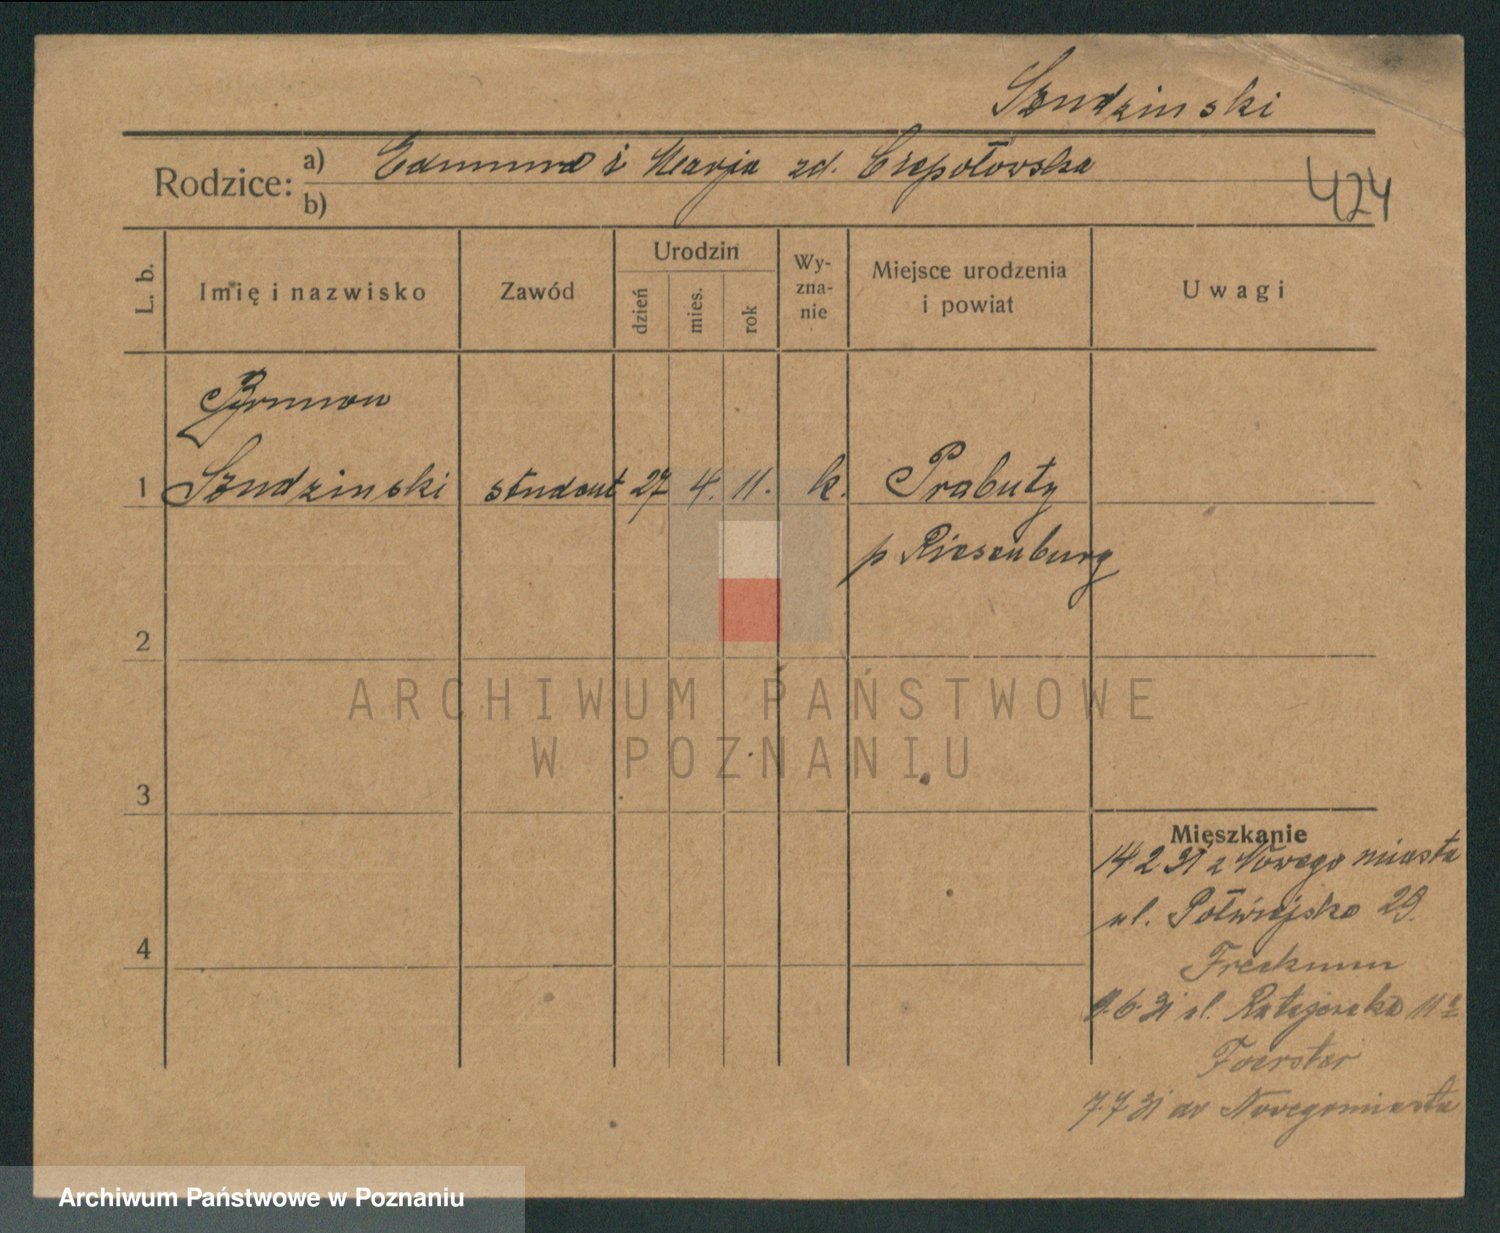 Szudzinski
Rodzice: a) Edmund i Marja zd. Czepołowska
b)
424
L. b. Imię i nazwisko Zawód Urodzin dzień mies. rok Wyznanie Miejsce urodzenia i powiat Uwagi
Brunon
1 Szudzinski student 27 4. 11. k. Prabuty
p Riesenburg
2
ARCHIWUM PAŃSTWOWE
W POZNANIU
3
Mieszkanie
14 2 31 z Nowego miasta
ul. Półwiejska 29.
4
9.6.31 ul. Ratajczaka 11a
Foerster
7.7 31 do Nowegomiasta
Archiwum Państwowe w Poznaniu